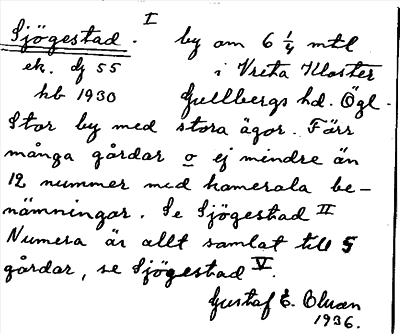 I
Sjögestad. by om 6 1/4 mtl
ek. dj 55 i Vreta Kloster
hb 1930 Gullbergs hd. Ögl.
Stor by med stora ägor. Förr
många gårdar o ej mindre än
12 nummer med kamerala be-
nämningar. Se Sjögestad II
Numera är allt samlat till 5
gårdar, se Sjögestad V.
Gustaf E.
1936.